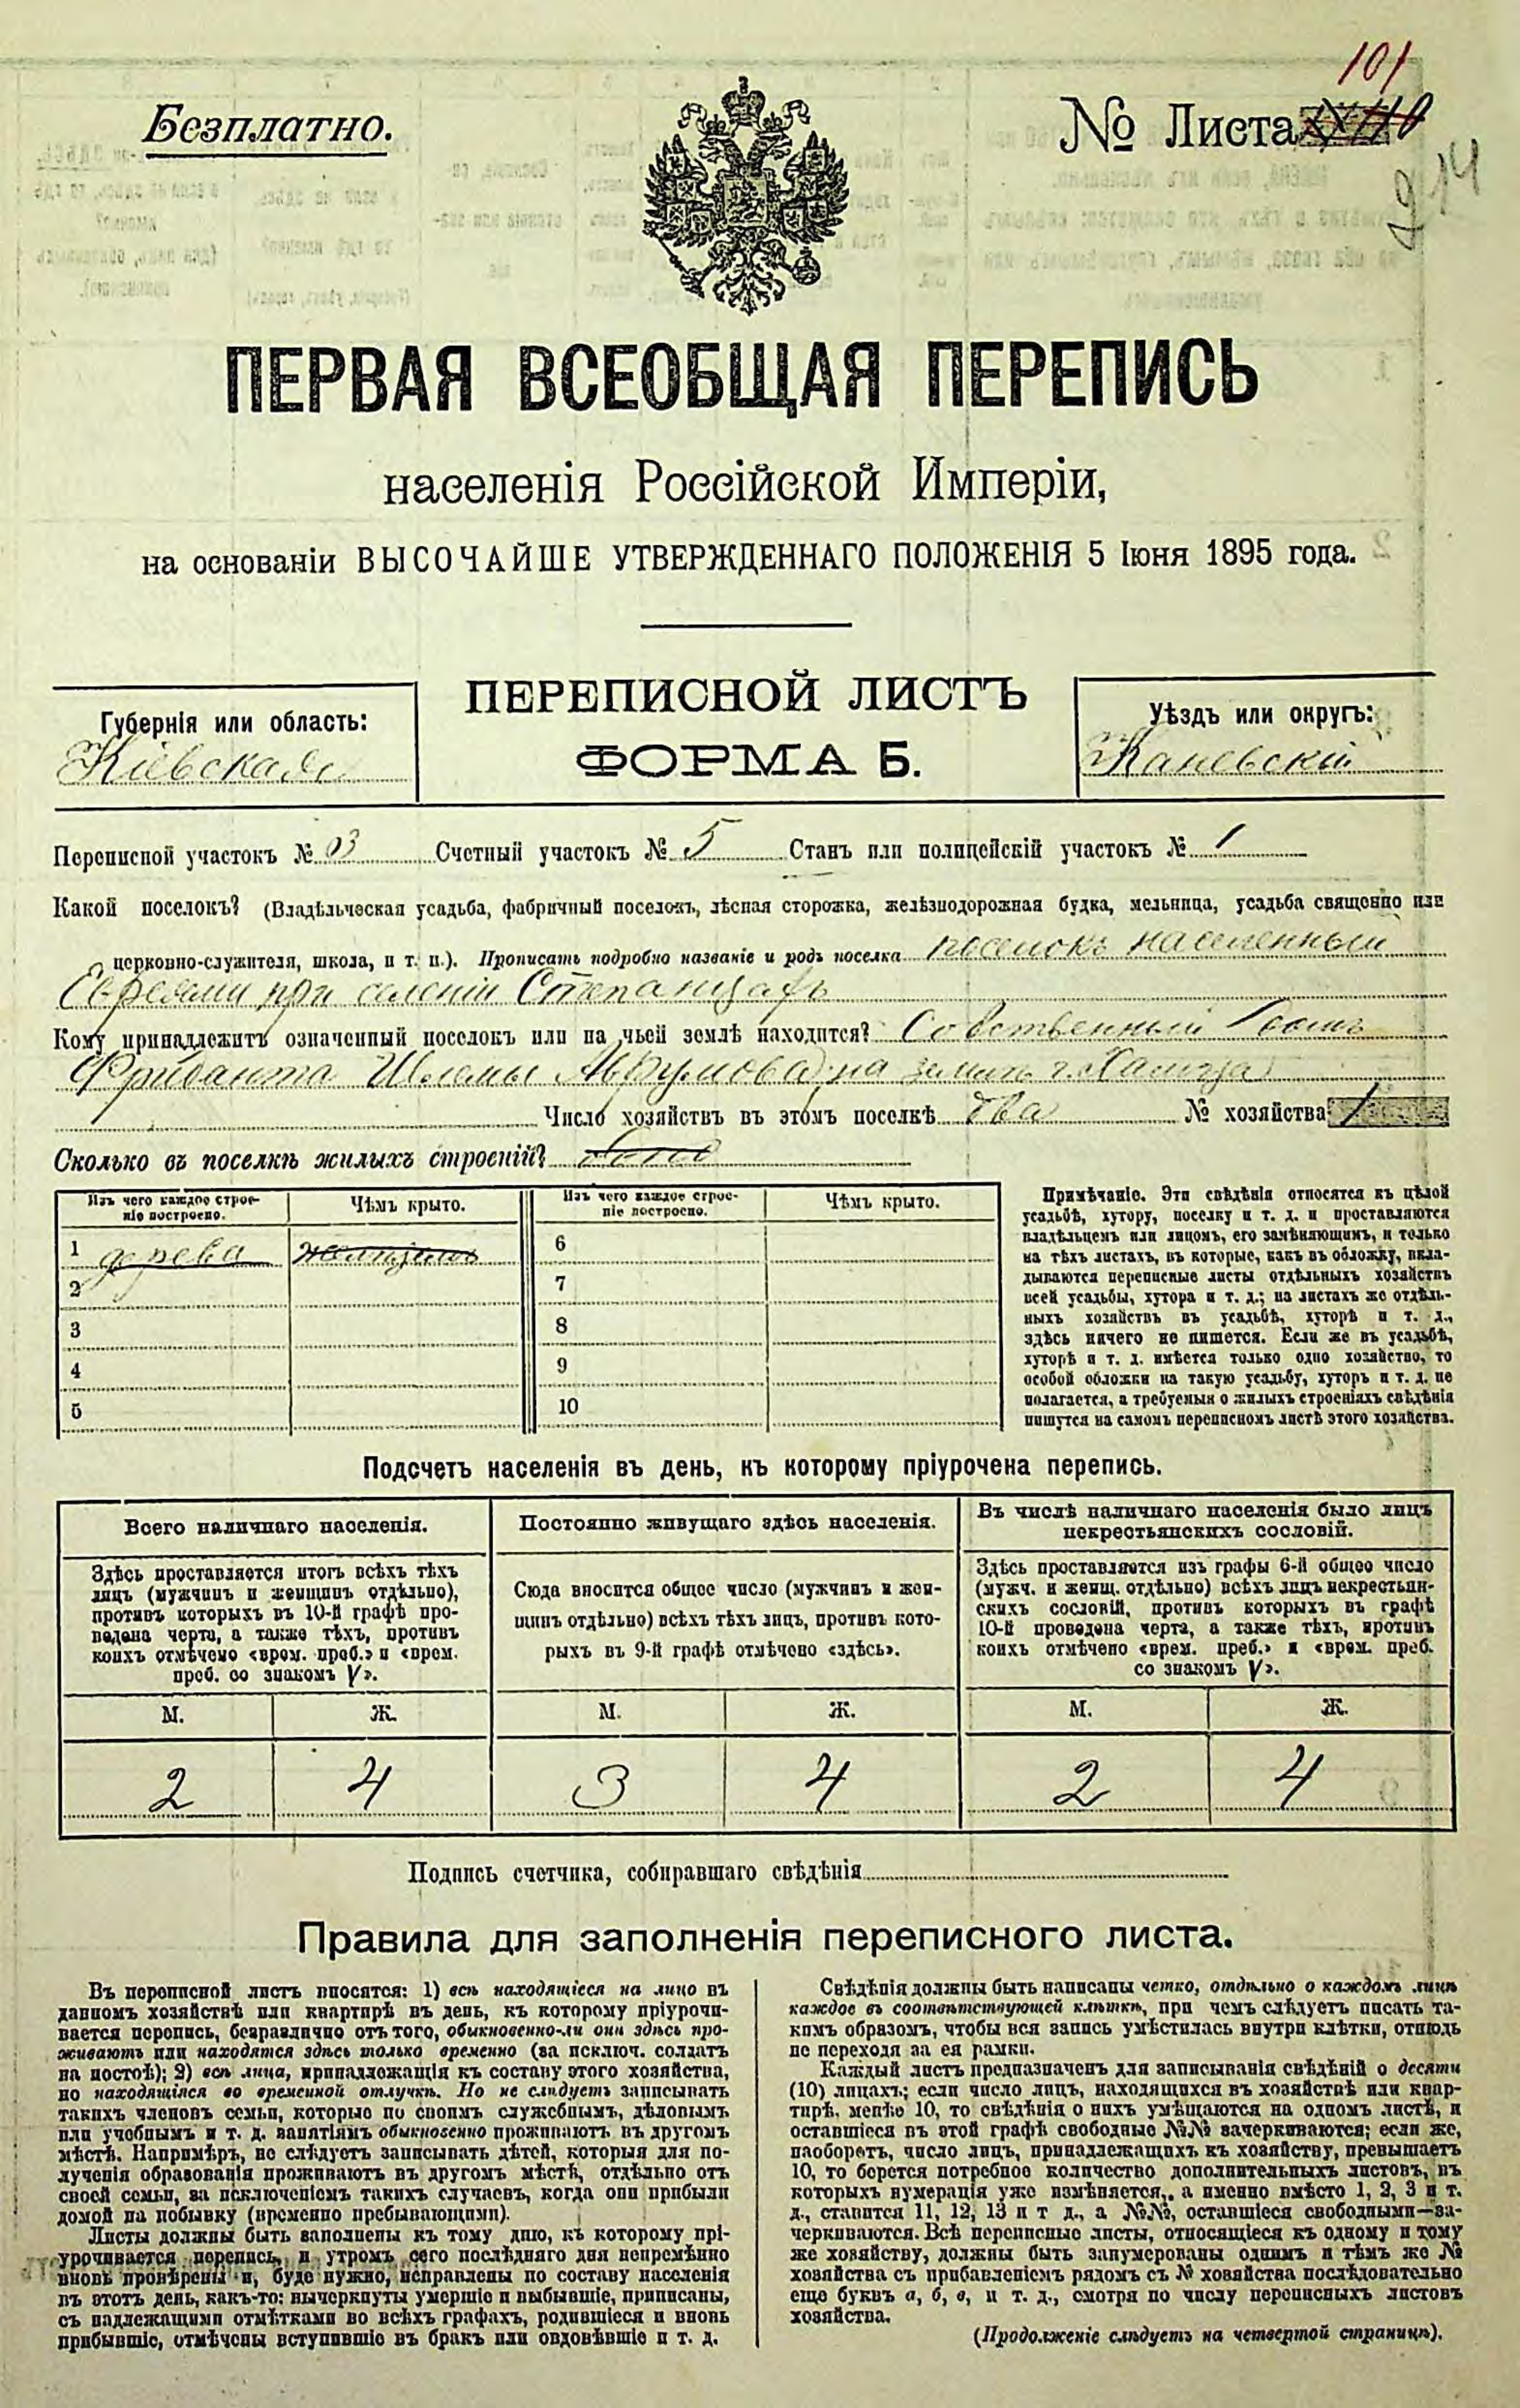 101
Безплатно.
№ Листа
14
ПЕРВАЯ ВСЕОБЩАЯ ПЕРЕПИСЬ
населенія Россійской Имперіи,
на основаніи ВЫСОЧАЙШЕ УТВЕРЖДЕННАГО ПОЛОЖЕНІЯ 5 Іюня 1895 года.
Губернія или область:
Кіевская
ПЕРЕПИСНОЙ ЛИСТЪ
ФОРМА Б.
Уѣздъ или округъ:
Каневскій
Переписной участокъ № 3 Счетный участокъ № 5 Станъ или полицейскій участокъ № 1
Какой поселокъ? (Владѣльческая усадьба, фабричный поселокъ, лѣсная сторожка, желѣзнодорожная будка, мельница, усадьба священно или
церковно-служителя, школа, и т. п.). Прописать подробно названіе и родъ поселка поселокъ населенный
Евреями при селеніи Степанцахъ
Кому принадлежитъ означенный поселокъ или на чьей землѣ находится? Собственный домъ
Шлемы Аврумова на землѣ г.
Число хозяйствъ въ этомъ поселкѣ два № хозяйства 1
Сколько въ поселкѣ жилыхъ строеній?
Изъ чего каждое строеніе построено.
Чѣмъ крыто.
Изъ чего каждое строеніе построено.
Чѣмъ крыто.
1 дерева
2
3
4
5
6
7
8
9
10
Примѣчаніе. Эти свѣдѣнія относятся къ цѣлой
усадьбѣ, хутору, поселку и т. д. и проставляются
владѣльцемъ или лицомъ, его замѣняющимъ, и только
на тѣхъ листахъ, въ которые, какъ въ обложку, вкла-
дываются переписные листы отдѣльныхъ хозяйствъ
всей усадьбы, хутора и т. д.; на листахъ же отдѣль-
ныхъ хозяйствъ въ усадьбѣ, хуторѣ и т. д.,
здѣсь ничего не пишется. Если же въ усадьбѣ,
хуторѣ и т. д. имѣется только одно хозяйство, то
особой обложки на такую усадьбу, хуторъ и т. д. не
полагается, а требуемыя о жилыхъ строеніяхъ свѣдѣнія
пишутся на самомъ переписномъ листѣ этого хозяйства.
Подсчетъ населенія въ день, къ которому пріурочена перепись.
Всего наличнаго населенія.
Здѣсь проставляется итогъ всѣхъ тѣхъ
лицъ (мужчинъ и женщинъ отдѣльно),
противъ которыхъ въ 10-й графѣ про-
ведена черта, а также тѣхъ, противъ
коихъ отмѣчено «врем. преб.» и «врем.
преб. со знакомъ V».
М. Ж.
2 4
Постоянно живущаго здѣсь населенія.
Сюда вносится общее число (мужчинъ и жен-
щинъ отдѣльно) всѣхъ тѣхъ лицъ, противъ кото-
рыхъ въ 9-й графѣ отмѣчено «здѣсь».
М. Ж.
3 4
Въ числѣ наличнаго населенія было лицъ
некрестьянскихъ сословій.
Здѣсь проставляется изъ графы 6-й общее число
(мужч. и женщ. отдѣльно) всѣхъ лицъ некрестьян-
скихъ сословій, противъ которыхъ въ графѣ
10-й проведена черта, а также тѣхъ, противъ
коихъ отмѣчено «врем. преб.» и «врем. преб.
со знакомъ V».
М. Ж.
2 4
Подпись счетчика, собиравшаго свѣдѣнія
Правила для заполненія переписного листа.
Въ переписной листъ вносятся: 1) всѣ находящіеся на лицо въ
данномъ хозяйствѣ или квартирѣ въ день, къ которому пріурочи-
вается перепись, безразлично отъ того, обыкновенно-ли они здѣсь про-
живаютъ или находятся здѣсь только временно (за исключ. солдатъ
на постоѣ); 2) всѣ лица, принадлежащія къ составу этого хозяйства,
но находящіяся во временной отлучкѣ. Но не слѣдуетъ записывать
такихъ членовъ семьи, которые по своимъ служебнымъ, дѣловымъ
или учебнымъ и т. д. занятіямъ обыкновенно проживаютъ въ другомъ
мѣстѣ. Напримѣръ, не слѣдуетъ записывать дѣтей, которыя для по-
лученія образованія проживаютъ въ другомъ мѣстѣ, отдѣльно отъ
своей семьи, за исключеніемъ такихъ случаевъ, когда они прибыли
домой на побывку (временно пребывающими).
Листы должны быть заполнены къ тому дню, къ которому прі-
урочивается перепись, и утромъ сего послѣдняго дня непремѣнно
вновь провѣрены и, буде нужно, исправлены по составу населенія
въ этотъ день, какъ-то: вычеркнуты умершіе и выбывшіе, приписаны,
съ надлежащими отмѣтками во всѣхъ графахъ, родившіеся и вновь
прибывшіе, отмѣчены вступившіе въ бракъ или овдовѣвшіе и т. д.
Свѣдѣнія должны быть написаны четко, отдѣльно о каждомъ лицѣ
каждое въ соотвѣтствующей клѣткѣ, при чемъ слѣдуетъ писать та-
кимъ образомъ, чтобы вся запись умѣстилась внутри клѣтки, отнюдь
не переходя за ея рамки.
Каждый листъ предназначенъ для записыванія свѣдѣній о десяти
(10) лицахъ; если число лицъ, находящихся въ хозяйствѣ или квар-
тирѣ, менѣе 10, то свѣдѣнія о нихъ умѣщаются на одномъ листѣ, и
оставшіеся въ этой графѣ свободные №№ зачеркиваются; если же,
наоборотъ, число лицъ, принадлежащихъ къ хозяйству, превышаетъ
10, то берется потребное количество дополнительныхъ листовъ, въ
которыхъ нумерація уже измѣняется, а именно вмѣсто 1, 2, 3 и т.
д., ставится 11, 12, 13 и т д., а №№, оставшіеся свободными—за-
черкиваются. Всѣ переписные листы, относящіеся къ одному и тому
же хозяйству, должны быть занумерованы однимъ и тѣмъ же №
хозяйства съ прибавленіемъ рядомъ съ № хозяйства послѣдовательно
еще буквъ а, б, в, и т. д., смотря по числу переписныхъ листовъ
хозяйства.
(Продолженіе слѣдуетъ на четвертой страницѣ).